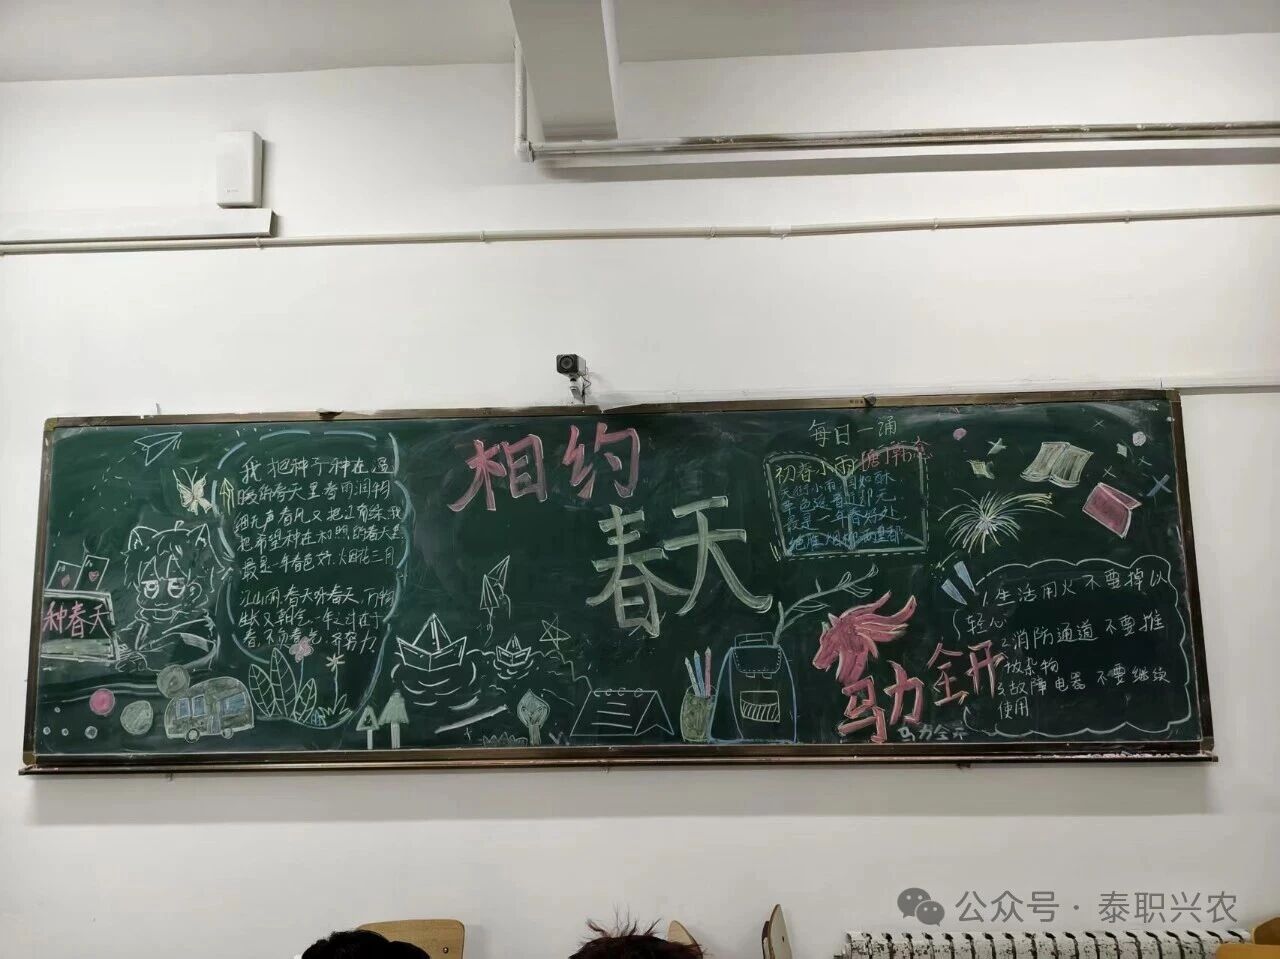 相约
春天
种春天
我把种子种在温
暖的春天里春雨润物
细无声春风又把江南绿.我
把希望种在和煦的春天里
最是一年春色好.烟花三月
江山雨.春天呀春天,万物
春.不负春色,齐努力.
每日一诵
初春小雨[唐]韩愈
天街小雨润如酥
草色遥看近却无
最是一年春好处
绝胜烟柳满皇都
马力全开
马力全开
1.生活用火不要掉以
轻心
2.消防通道不要推
放杂物
3.故障电器不要继续
使用
公众号·泰职兴农